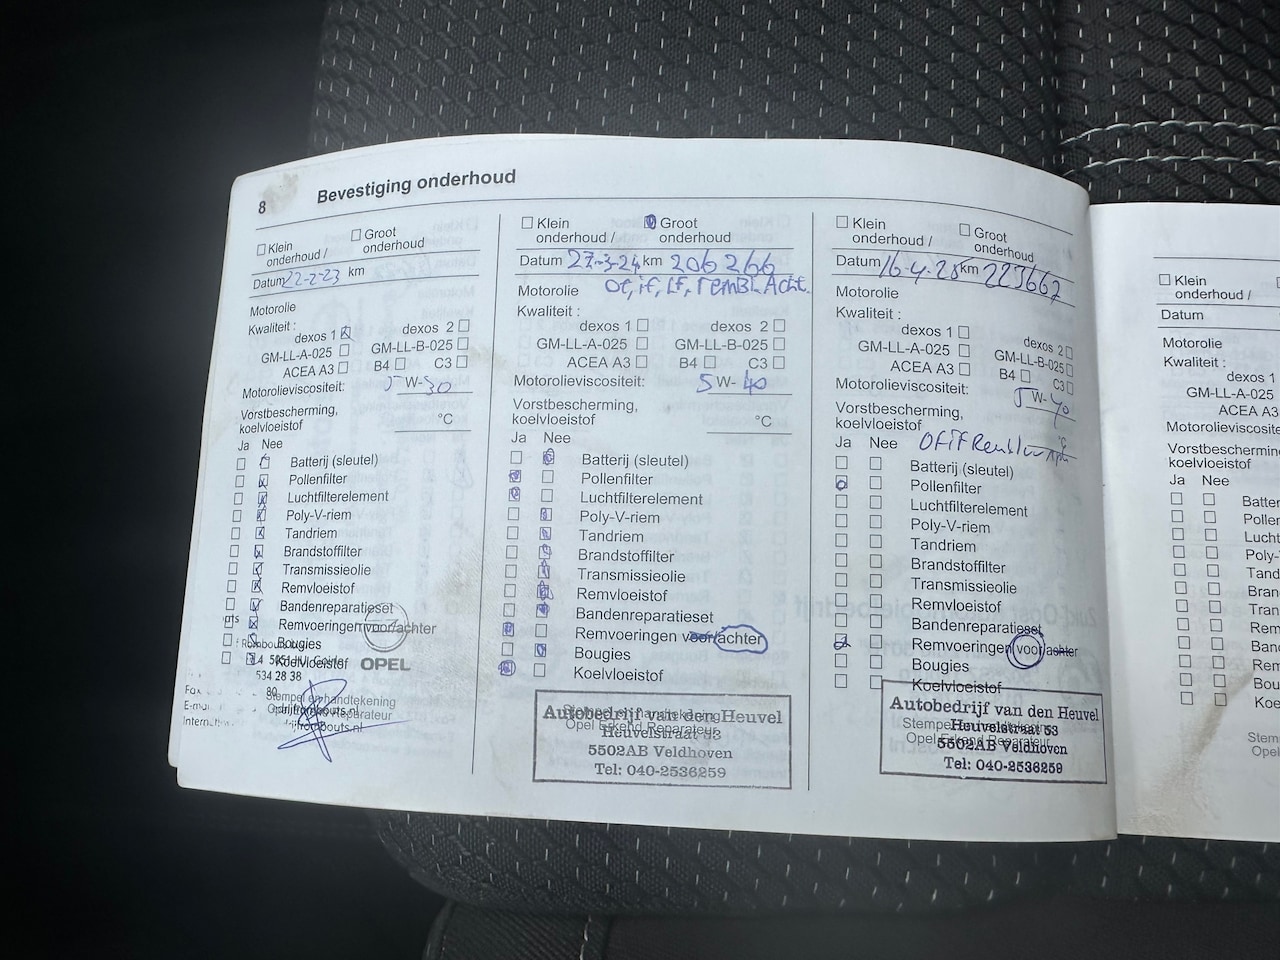 8 Bevestiging onderhoud
Klein onderhoud /
Groot onderhoud
Datum 22-2-23 km
Motorolie
Kwaliteit :
dexos 1
GM-LL-A-025
ACEA A3
Motorolieviscositeit:
Vorstbescherming,
koelvloeistof
Ja Nee
Batterij (sleutel)
Pollenfilter
Luchtfilterelement
Poly-V-riem
Tandriem
Brandstoffilter
Transmissieolie
Remvloeistof
Bandenreparatieset
Remvoeringen voor/achter
Bougies
Koelvloeistof
OPEL
534 28 38
80
Stempel en handtekening
Opel Erkend Reparateur
Klein onderhoud /
Groot onderhoud
Datum 27-3-24 km 206 266
Motorolie
Of, if, Lf, remBl. Acht.
Kwaliteit :
dexos 1 dexos 2
GM-LL-A-025 GM-LL-B-025
ACEA A3 B4 C3
Motorolieviscositeit: 5 W- 40
Vorstbescherming,
koelvloeistof °C
Ja Nee
Batterij (sleutel)
Pollenfilter
Luchtfilterelement
Poly-V-riem
Tandriem
Brandstoffilter
Transmissieolie
Remvloeistof
Bandenreparatieset
Remvoeringen voor/achter
Bougies
Koelvloeistof
Stempel en handtekening
Opel Erkend Reparateur
Autobedrijf van den Heuvel
Heuvelstraat 53
5502AB Veldhoven
Tel: 040-2536259
Klein onderhoud /
Groot onderhoud
Datum 16-4-25 km
Motorolie
Kwaliteit :
dexos 1 dexos 2
GM-LL-A-025 GM-LL-B-025
ACEA A3 B4 C3
Motorolieviscositeit: 5 W- 40
Vorstbescherming,
koelvloeistof °C
Ja Nee
Batterij (sleutel)
Pollenfilter
Luchtfilterelement
Poly-V-riem
Tandriem
Brandstoffilter
Transmissieolie
Remvloeistof
Bandenreparatieset
Remvoeringen voor/achter
Bougies
Koelvloeistof
Stempel en handtekening
Opel Erkend Reparateur
Autobedrijf van den Heuvel
Heuvelstraat 53
5502AB Veldhoven
Tel: 040-2536259
Klein onderhoud /
Datum
Motorolie
Kwaliteit :
dexos 1
GM-LL-A-025
ACEA A3
Ja Nee